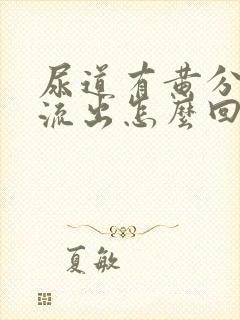 尿道有黄分
流出怎麼回
夏敏